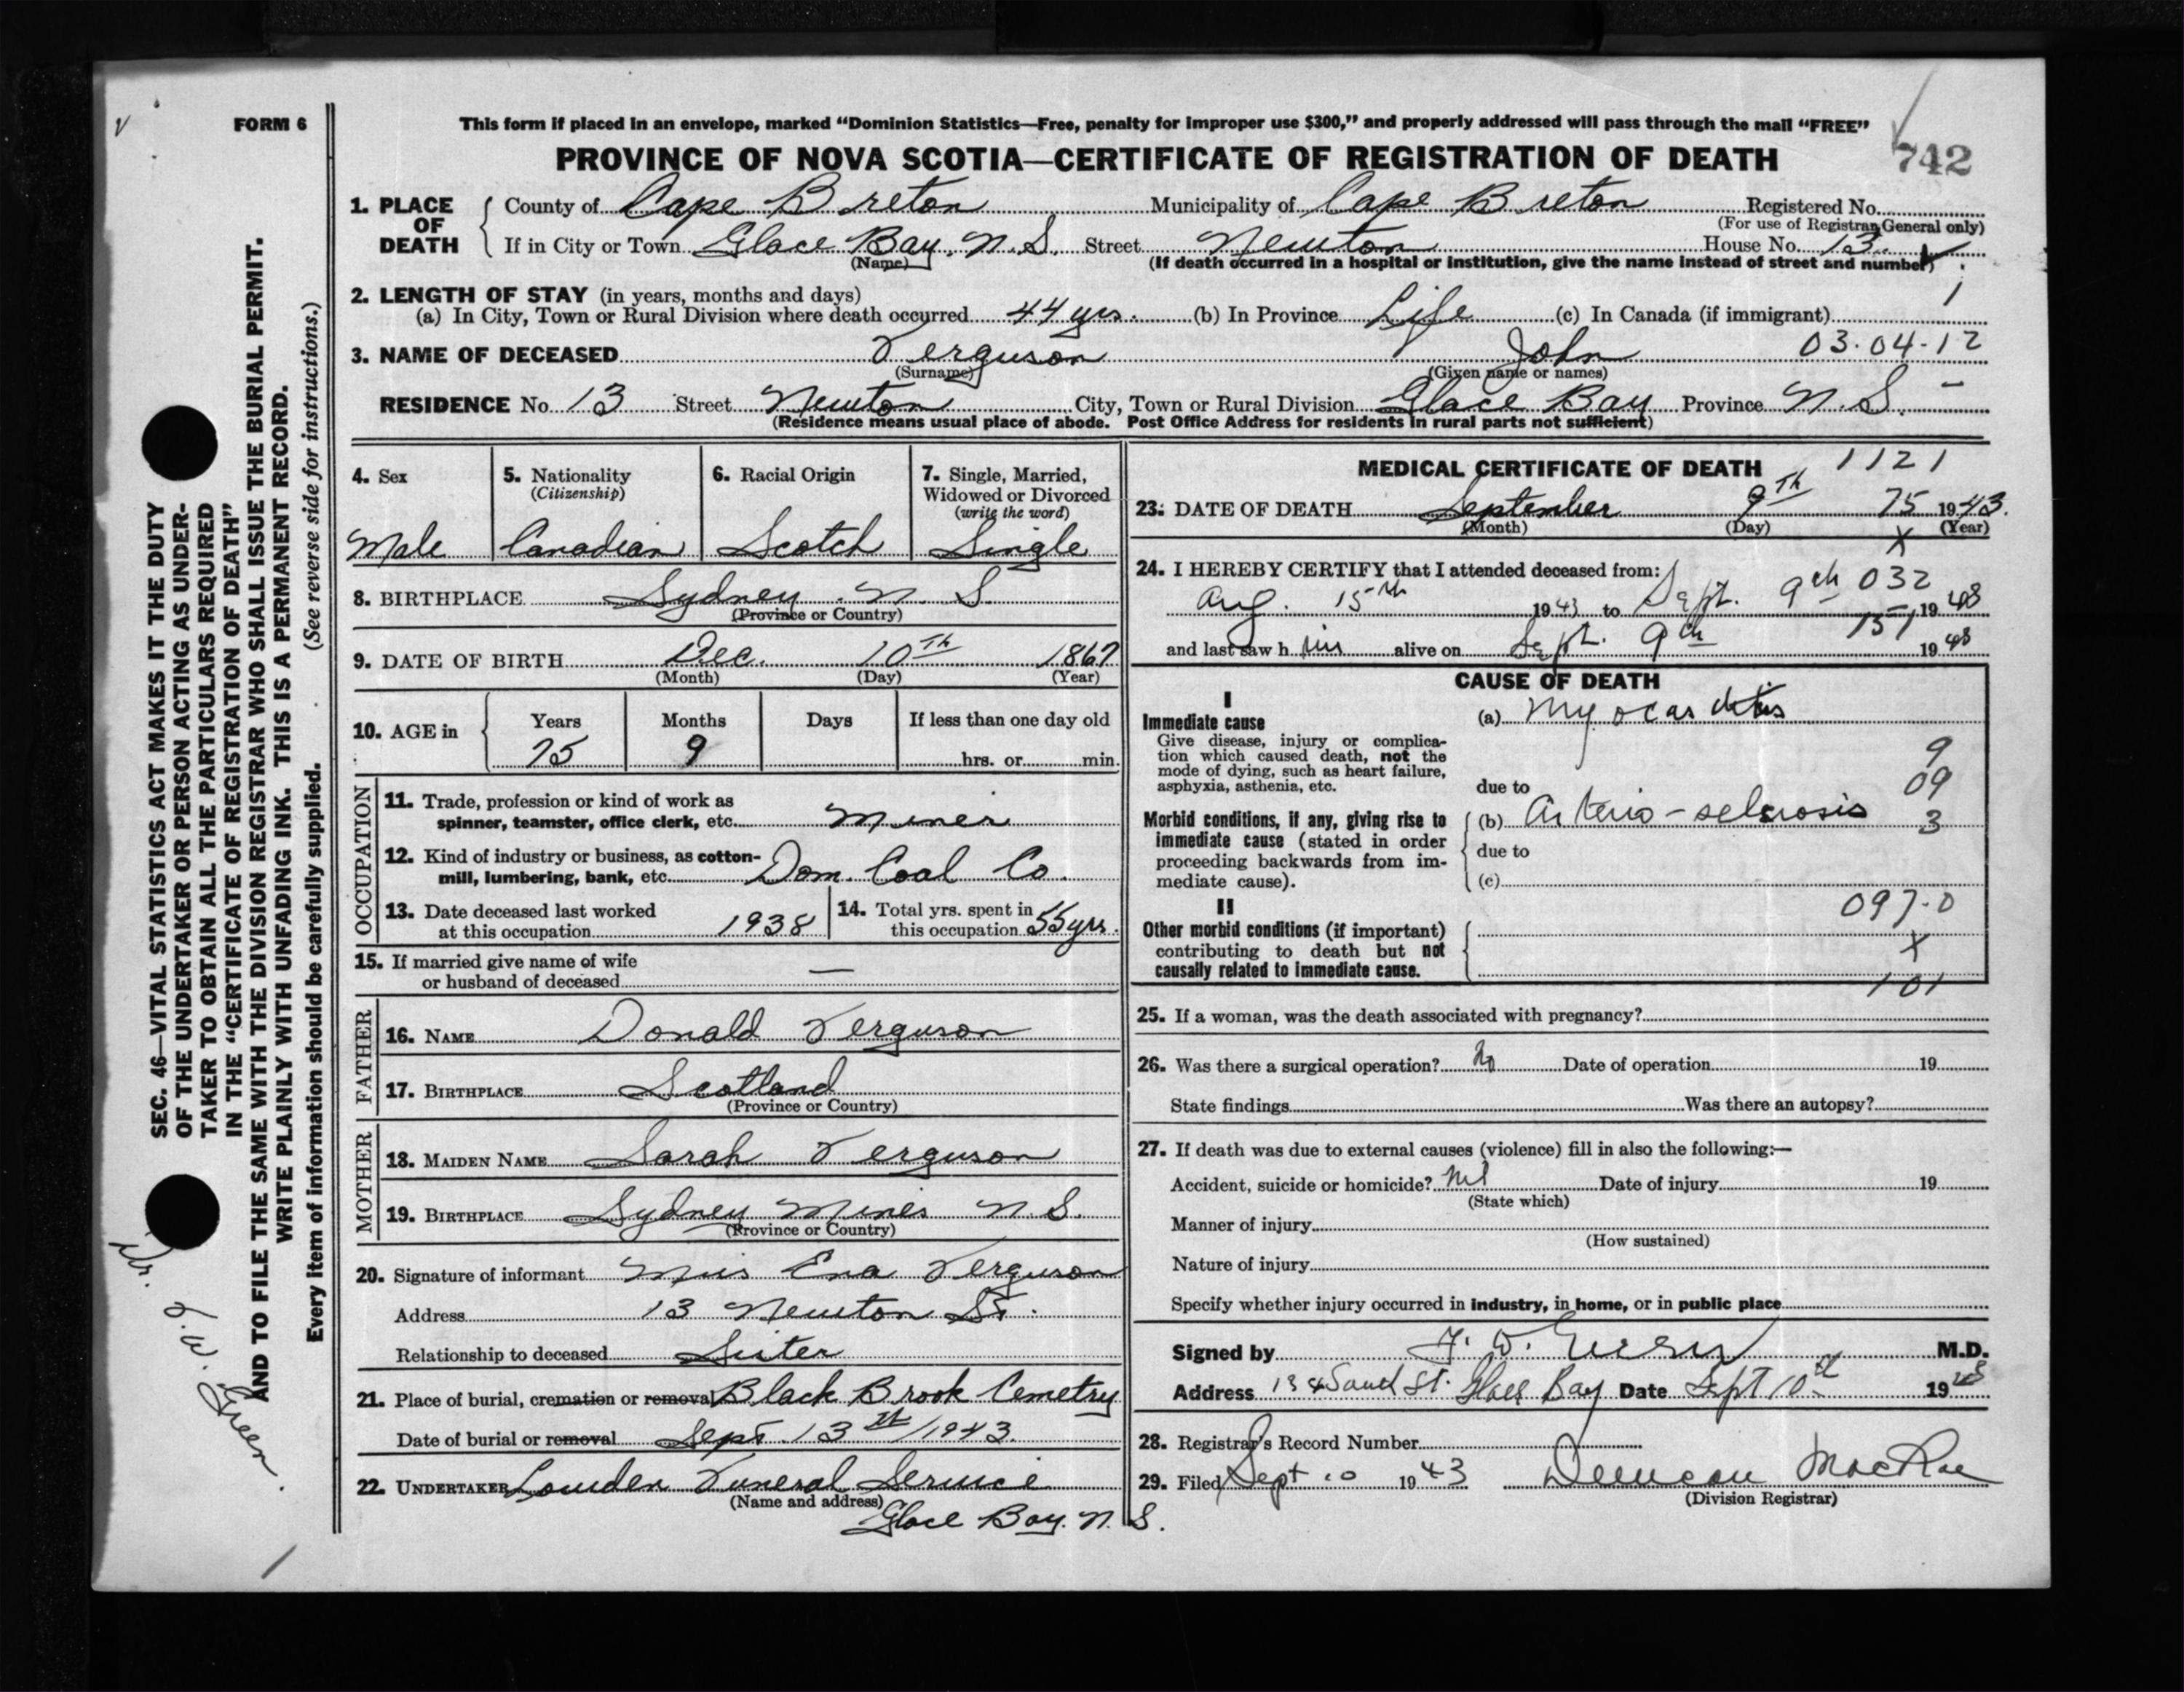 FORM 6
This form if placed in an envelope, marked "Dominion Statistics—Free, penalty for improper use $300," and properly addressed will pass through the mail "FREE"
PROVINCE OF NOVA SCOTIA—CERTIFICATE OF REGISTRATION OF DEATH
742
1. PLACE OF DEATH
County of Cape Breton Municipality of Cape Breton Registered No.
(For use of Registrar General only)
If in City or Town Glace Bay, N.S. Street Newton House No. 13
(Name) (If death occurred in a hospital or institution, give the name instead of street and number)
2. LENGTH OF STAY (in years, months and days)
(a) In City, Town or Rural Division where death occurred 44 yrs. (b) In Province Life (c) In Canada (if immigrant)
3. NAME OF DECEASED Ferguson John 03.04-12
(Surname) (Given name or names)
RESIDENCE No. 13 Street Newton City, Town or Rural Division Glace Bay Province N.S. -
(Residence means usual place of abode. Post Office Address for residents in rural parts not sufficient)
4. Sex
Male
5. Nationality
(Citizenship)
Canadian
6. Racial Origin
Scotch
7. Single, Married,
Widowed or Divorced
(write the word)
Single
8. BIRTHPLACE Sydney. N. S.
(Province or Country)
9. DATE OF BIRTH Dec. 10th 1867
(Month) (Day) (Year)
10. AGE in
Years Months Days If less than one day old
75 9 hrs. or min.
OCCUPATION
11. Trade, profession or kind of work as
spinner, teamster, office clerk, etc. Miner
12. Kind of industry or business, as cotton-
mill, lumbering, bank, etc. Dom. Coal Co.
13. Date deceased last worked
at this occupation 1938
14. Total yrs. spent in
this occupation 55 yrs.
15. If married give name of wife
or husband of deceased —
FATHER
16. NAME Donald Ferguson
17. BIRTHPLACE Scotland
(Province or Country)
MOTHER
18. MAIDEN NAME Sarah Ferguson
19. BIRTHPLACE Sydney Mines N.S.
(Province or Country)
20. Signature of informant Miss Ena Ferguson
Address 13 Newton St.
Relationship to deceased Sister
21. Place of burial, cremation or removal Black Brook Cemetry
Date of burial or removal Sept 13th/1943.
22. UNDERTAKER Louden Funeral Service
(Name and address)
Glace Bay. N. S.
MEDICAL CERTIFICATE OF DEATH 1121
23. DATE OF DEATH September 9th 75 1943.
(Month) (Day) (Year)
X
24. I HEREBY CERTIFY that I attended deceased from:
032
Aug. 15th 1943 to Sept. 9th 1943
151
and last saw h im alive on Sept. 9th 1943
CAUSE OF DEATH
I
Immediate cause
Give disease, injury or complica-
tion which caused death, not the
mode of dying, such as heart failure,
asphyxia, asthenia, etc.
(a) Myocarditis
9
due to
09
Morbid conditions, if any, giving rise to
immediate cause (stated in order
proceeding backwards from im-
mediate cause).
(b) Arterio-sclerosis
3
due to
(c)
097-0
II
Other morbid conditions (if important)
contributing to death but not
causally related to immediate cause.
X
101
25. If a woman, was the death associated with pregnancy?
26. Was there a surgical operation? No Date of operation 19
State findings Was there an autopsy?
27. If death was due to external causes (violence) fill in also the following:—
Accident, suicide or homicide? Nil Date of injury 19
(State which)
Manner of injury
(How sustained)
Nature of injury
Specify whether injury occurred in industry, in home, or in public place
Signed by F. W. Green M.D.
Address Glace Bay Date Sept 10th 1943
28. Registrar's Record Number
29. Filed Sept 10 1943 Duncan MacRae
(Division Registrar)
SEC. 46—VITAL STATISTICS ACT MAKES IT THE DUTY
OF THE UNDERTAKER OR PERSON ACTING AS UNDER-
TAKER TO OBTAIN ALL THE PARTICULARS REQUIRED
IN THE "CERTIFICATE OF REGISTRATION OF DEATH"
AND TO FILE THE SAME WITH THE DIVISION REGISTRAR WHO SHALL ISSUE THE BURIAL PERMIT.
WRITE PLAINLY WITH UNFADING INK. THIS IS A PERMANENT RECORD.
Every item of information should be carefully supplied. (See reverse side for instructions.)
Dr. F. W. Green.